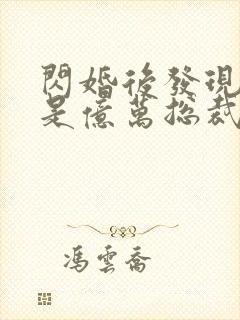 閃婚後發現
是億萬總裁
馮雲喬